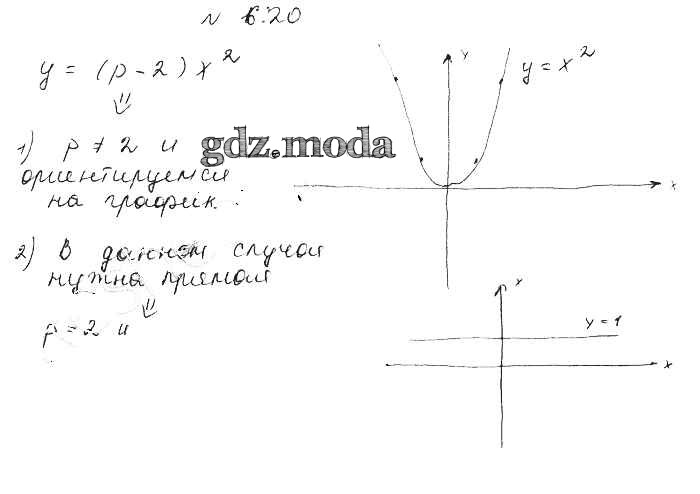 № 6.20
y = (p - 2) x²
⇓
1) p ≠ 2 и
ориентируемся
на график:
2) В данном случаи
нужна прямая
⇓
p = 2 и
gdz.moda
y
y = x²
x
y
y = 1
x